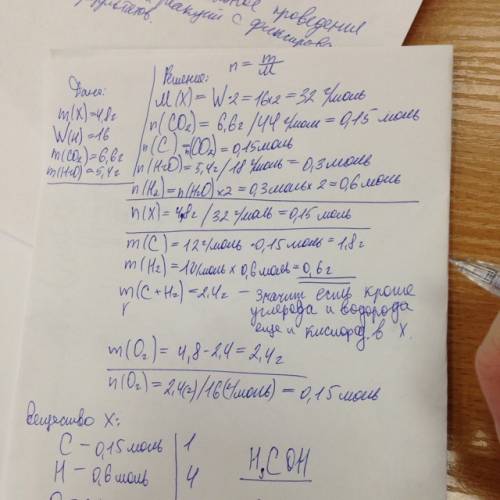 проведения
реакций с фиксиров
Дано:
m(X)=4,8г
W(H)=16
m(CO₂)=6,6г
m(H₂O)=5,4г
Решение: n = m/M
M(X) = W·2 = 16×2 = 32 г/моль
n(CO₂) = 6,6г/44 г/моль = 0,15 моль
n(C) = n(CO₂) = 0,15 моль
n(H₂O) = 5,4г/18 г/моль = 0,3 моль
n(H₂) = n(H₂O)×2 = 0,3 моль×2 = 0,6 моль
n(X) = 4,8г/32 г/моль = 0,15 моль
m(C) = 12 г/моль ·0,15 моль = 1,8г
m(H₂) = 1 г/моль × 0,6 моль = 0,6г
m(C+H₂) = 2,4г – значит есть кроме
углерода и водорода
еще и кислород в X.
m(O₂) = 4,8-2,4 = 2,4г
n(O₂) = 2,4(г)/16(г/моль) = 0,15 моль
Вещество X:
C – 0,15 моль | 1
H – 0,6 моль | 4
H₃COH